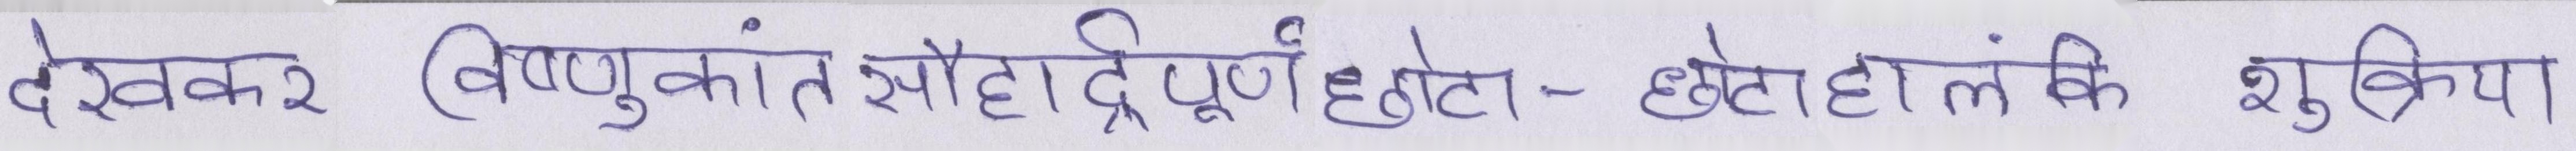 देखकर विष्णुकांत सौहार्द्रपूर्ण छोटा - छोटा हालंकि शुक्रिया